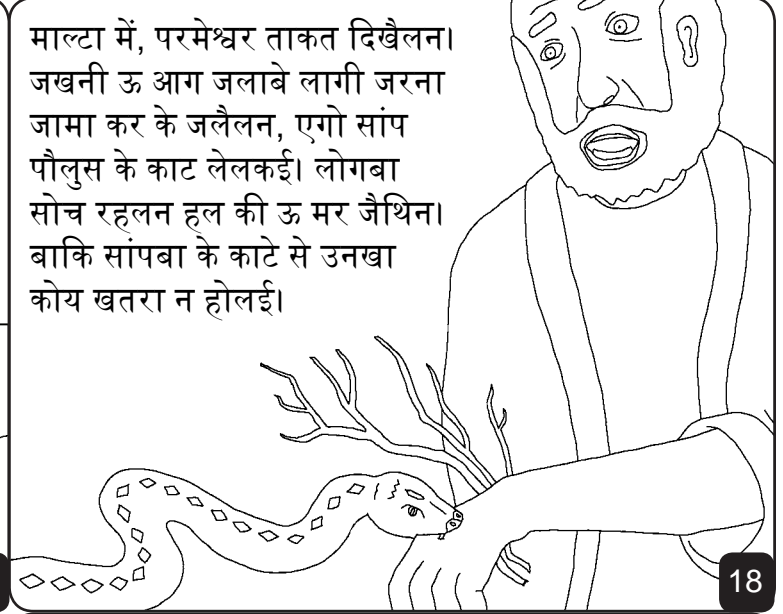 माल्टा में, परमेश्वर ताकत दिखैलन।
जखनी ऊ आग जलाबे लागी जरना
जामा कर के जलैलन, एगो सांप
पौलुस के काट लेलकई। लोगबा
सोच रहलन हल की ऊ मर जैथिन।
बाकि सांपबा के काटे से उनखा
कोय खतरा न होलई।
18